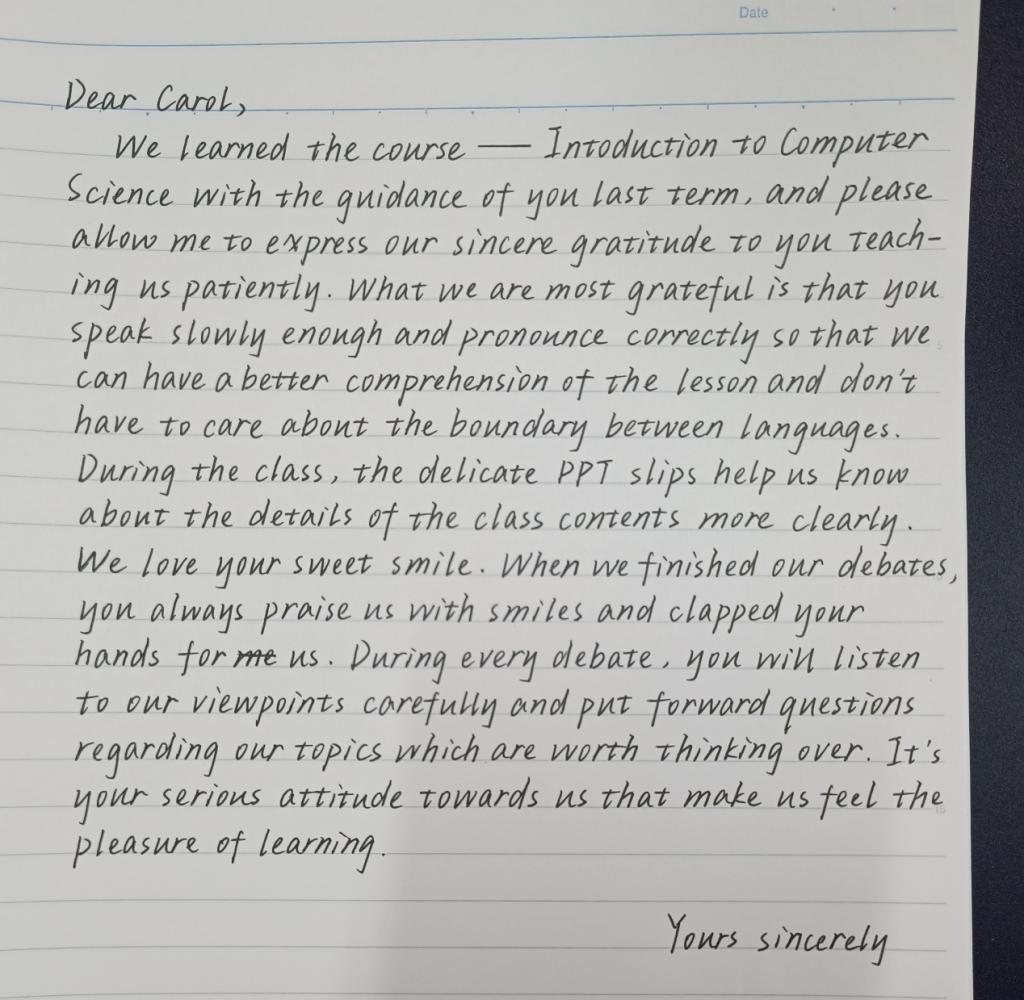 Date
Dear Carol,
We learned the course — Intoduction to Computer
Science with the guidance of you last term, and please
allow me to express our sincere gratitude to you teach-
ing us patiently. What we are most grateful is that you
speak slowly enough and pronounce correctly so that we
can have a better comprehension of the lesson and don't
have to care about the boundary between languages.
During the class, the delicate PPT slips help us know
about the details of the class contents more clearly.
We love your sweet smile. When we finished our debates,
you always praise us with smiles and clapped your
hands for me us. During every debate, you will listen
to our viewpoints carefully and put forward questions
regarding our topics which are worth thinking over. It's
your serious attitude towards us that make us feel the
pleasure of learning.
Yours sincerely